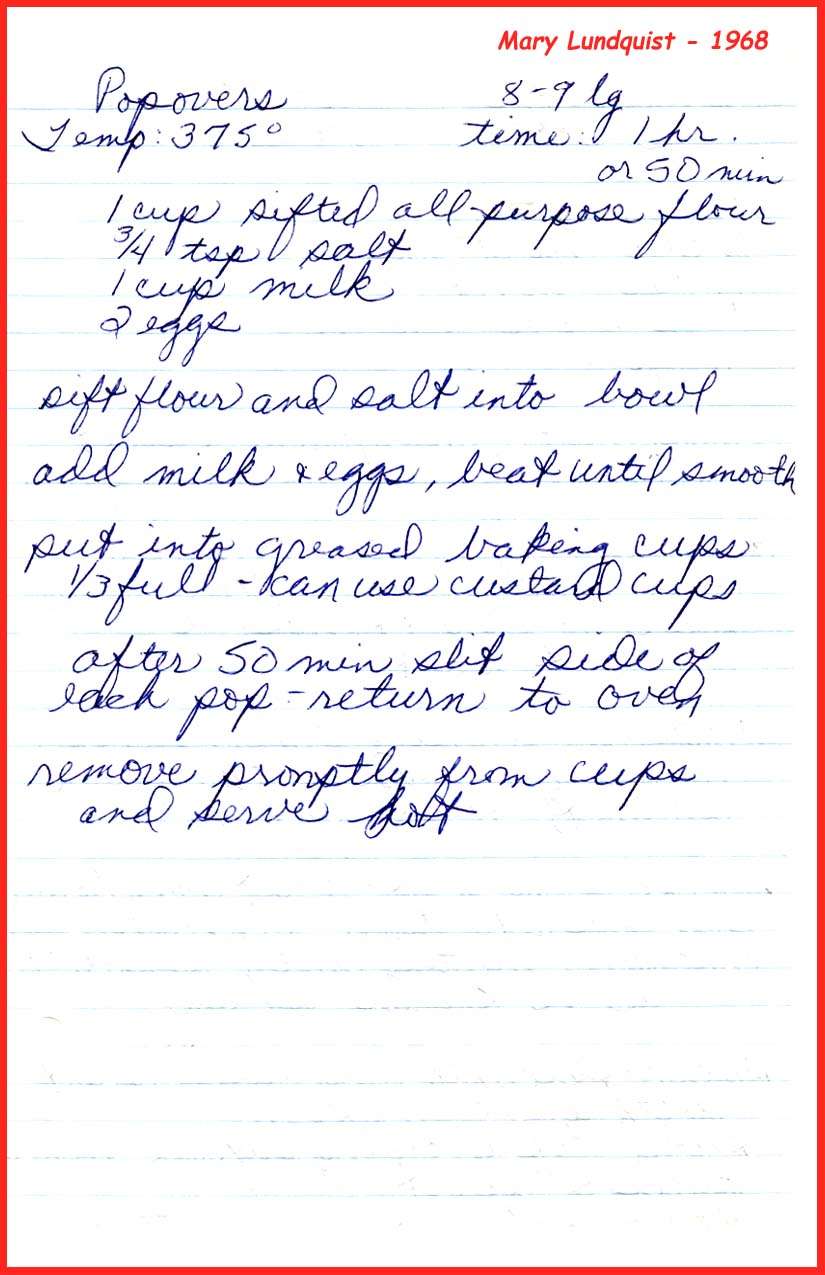 Mary Lundquist - 1968
Popovers 8-9 lg
Temp: 375° time: 1 hr.
or 50 min
1 cup sifted all-purpose flour
3/4 tsp salt
1 cup milk
2 eggs
sift flour and salt into bowl
add milk & eggs, beat until smooth
put into greased baking cups
1/3 full - can use custard cups
after 50 min slit side of
each pop - return to oven
remove promptly from cups
and serve hot